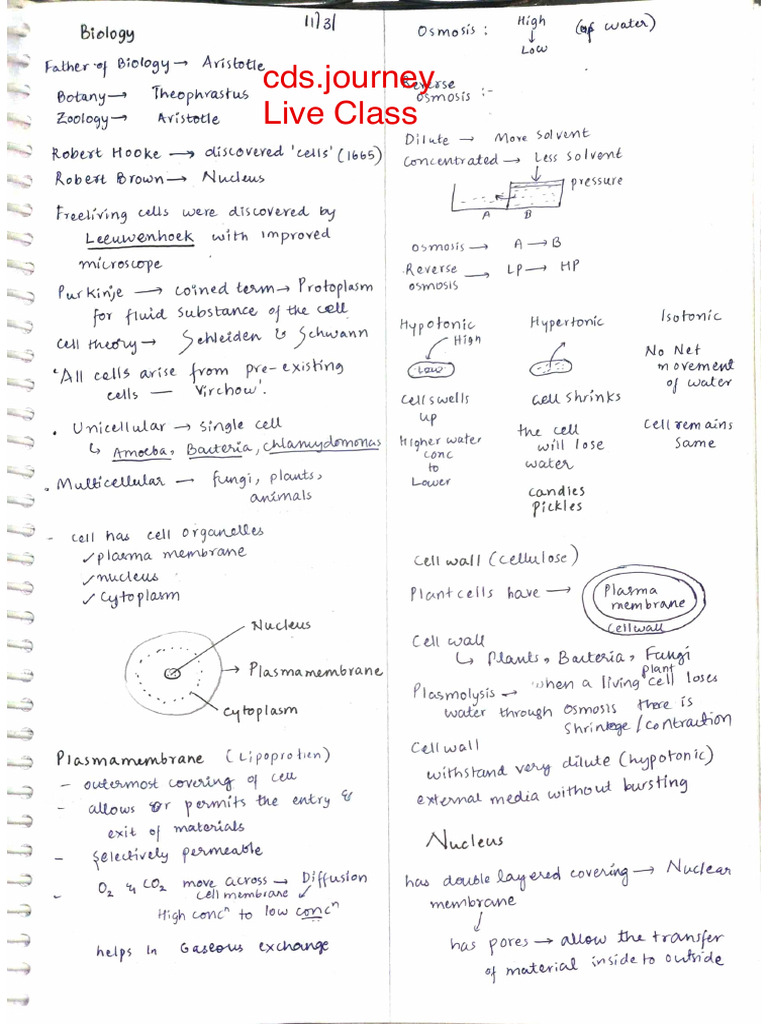 Biology
11/3/
Father of Biology → Aristotle
Botany → Theophrastus
Zoology → Aristotle
cds.journey
Live Class
Robert Hooke → discovered 'cells' (1665)
Robert Brown → Nucleus
Freeliving cells were discovered by
Leeuwenhoek with improved
microscope
Purkinje → coined term → Protoplasm
for fluid substance of the cell
cell theory → Schleiden & Schwann
'All cells arise from pre-existing
cells — Virchow'.
. Unicellular → single cell
↳ Amoeba, Bacteria, Chlamydomonas
. Multicellular → fungi, plants,
animals
- cell has cell organelles
✓ plasma membrane
✓ nucleus
✓ cytoplasm
Nucleus
→ Plasmamembrane
cytoplasm
Plasmamembrane (Lipoprotien)
- outermost covering of cell
- allows or permits the entry &
exit of materials
- Selectively permeable
- O2 & CO2 move across → Diffusion
cell membrane ↙
High concn to low concn
helps in Gaseous exchange
Osmosis : High (of water)
↓
Low
Reverse
osmosis :-
Dilute → More solvent
Concentrated → Less solvent
pressure
A B
osmosis → A → B
Reverse → LP → HP
osmosis
Hypotonic Hypertonic Isotonic
High
Low
No Net
movement
of water
Cell swells
up
cell shrinks
Cell remains
same
Higher water
conc
to
Lower
the cell
will lose
water
candies
Pickles
Cell wall (cellulose)
Plant cells have →
Plasma
membrane
cellwall
Cell wall
↳ Plants, Bacteria, Fungi
Plasmolysis → when a living plant cell loses
water through osmosis there is
shrinkage/contraction
Cell wall
withstand very dilute (hypotonic)
external media without bursting
Nucleus
has double layered covering → Nuclear
membrane
↓
has pores → allow the transfer
of material inside to outside